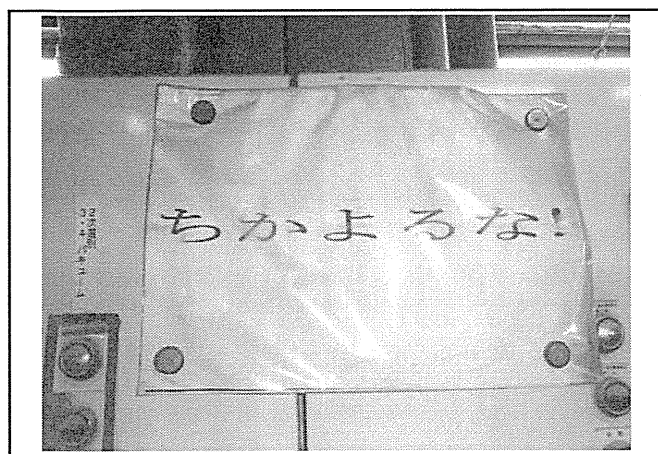 ちかよるな!